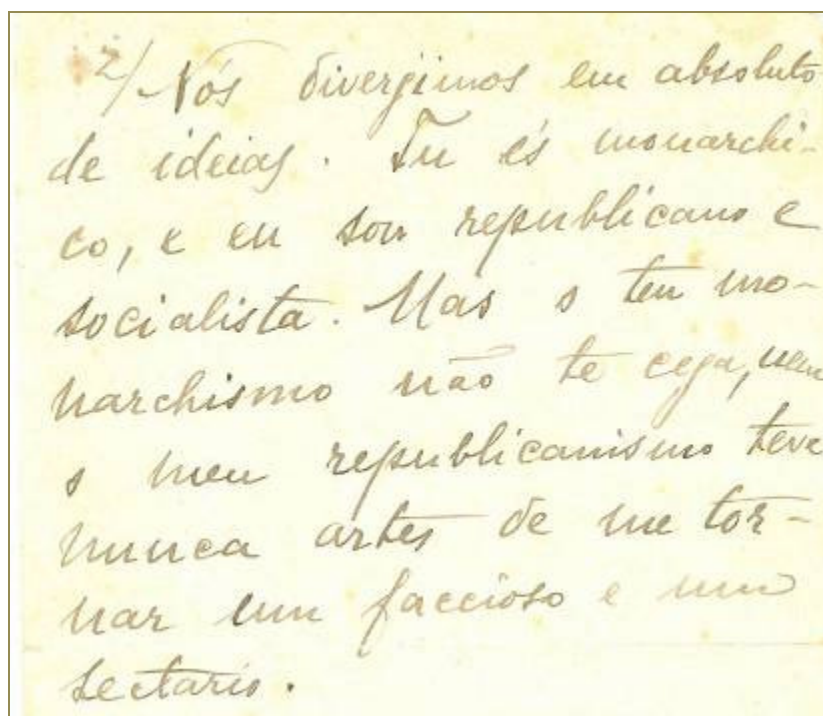 2/ Nós divergimos em absoluto
de ideias. Tu és monarchi-
co, e eu sou republicano e
socialista. Mas o teu mo-
narchismo não te cega, nem
o meu republicanismo teve
nunca artes de me tor-
nar um faccioso e um
sectario.